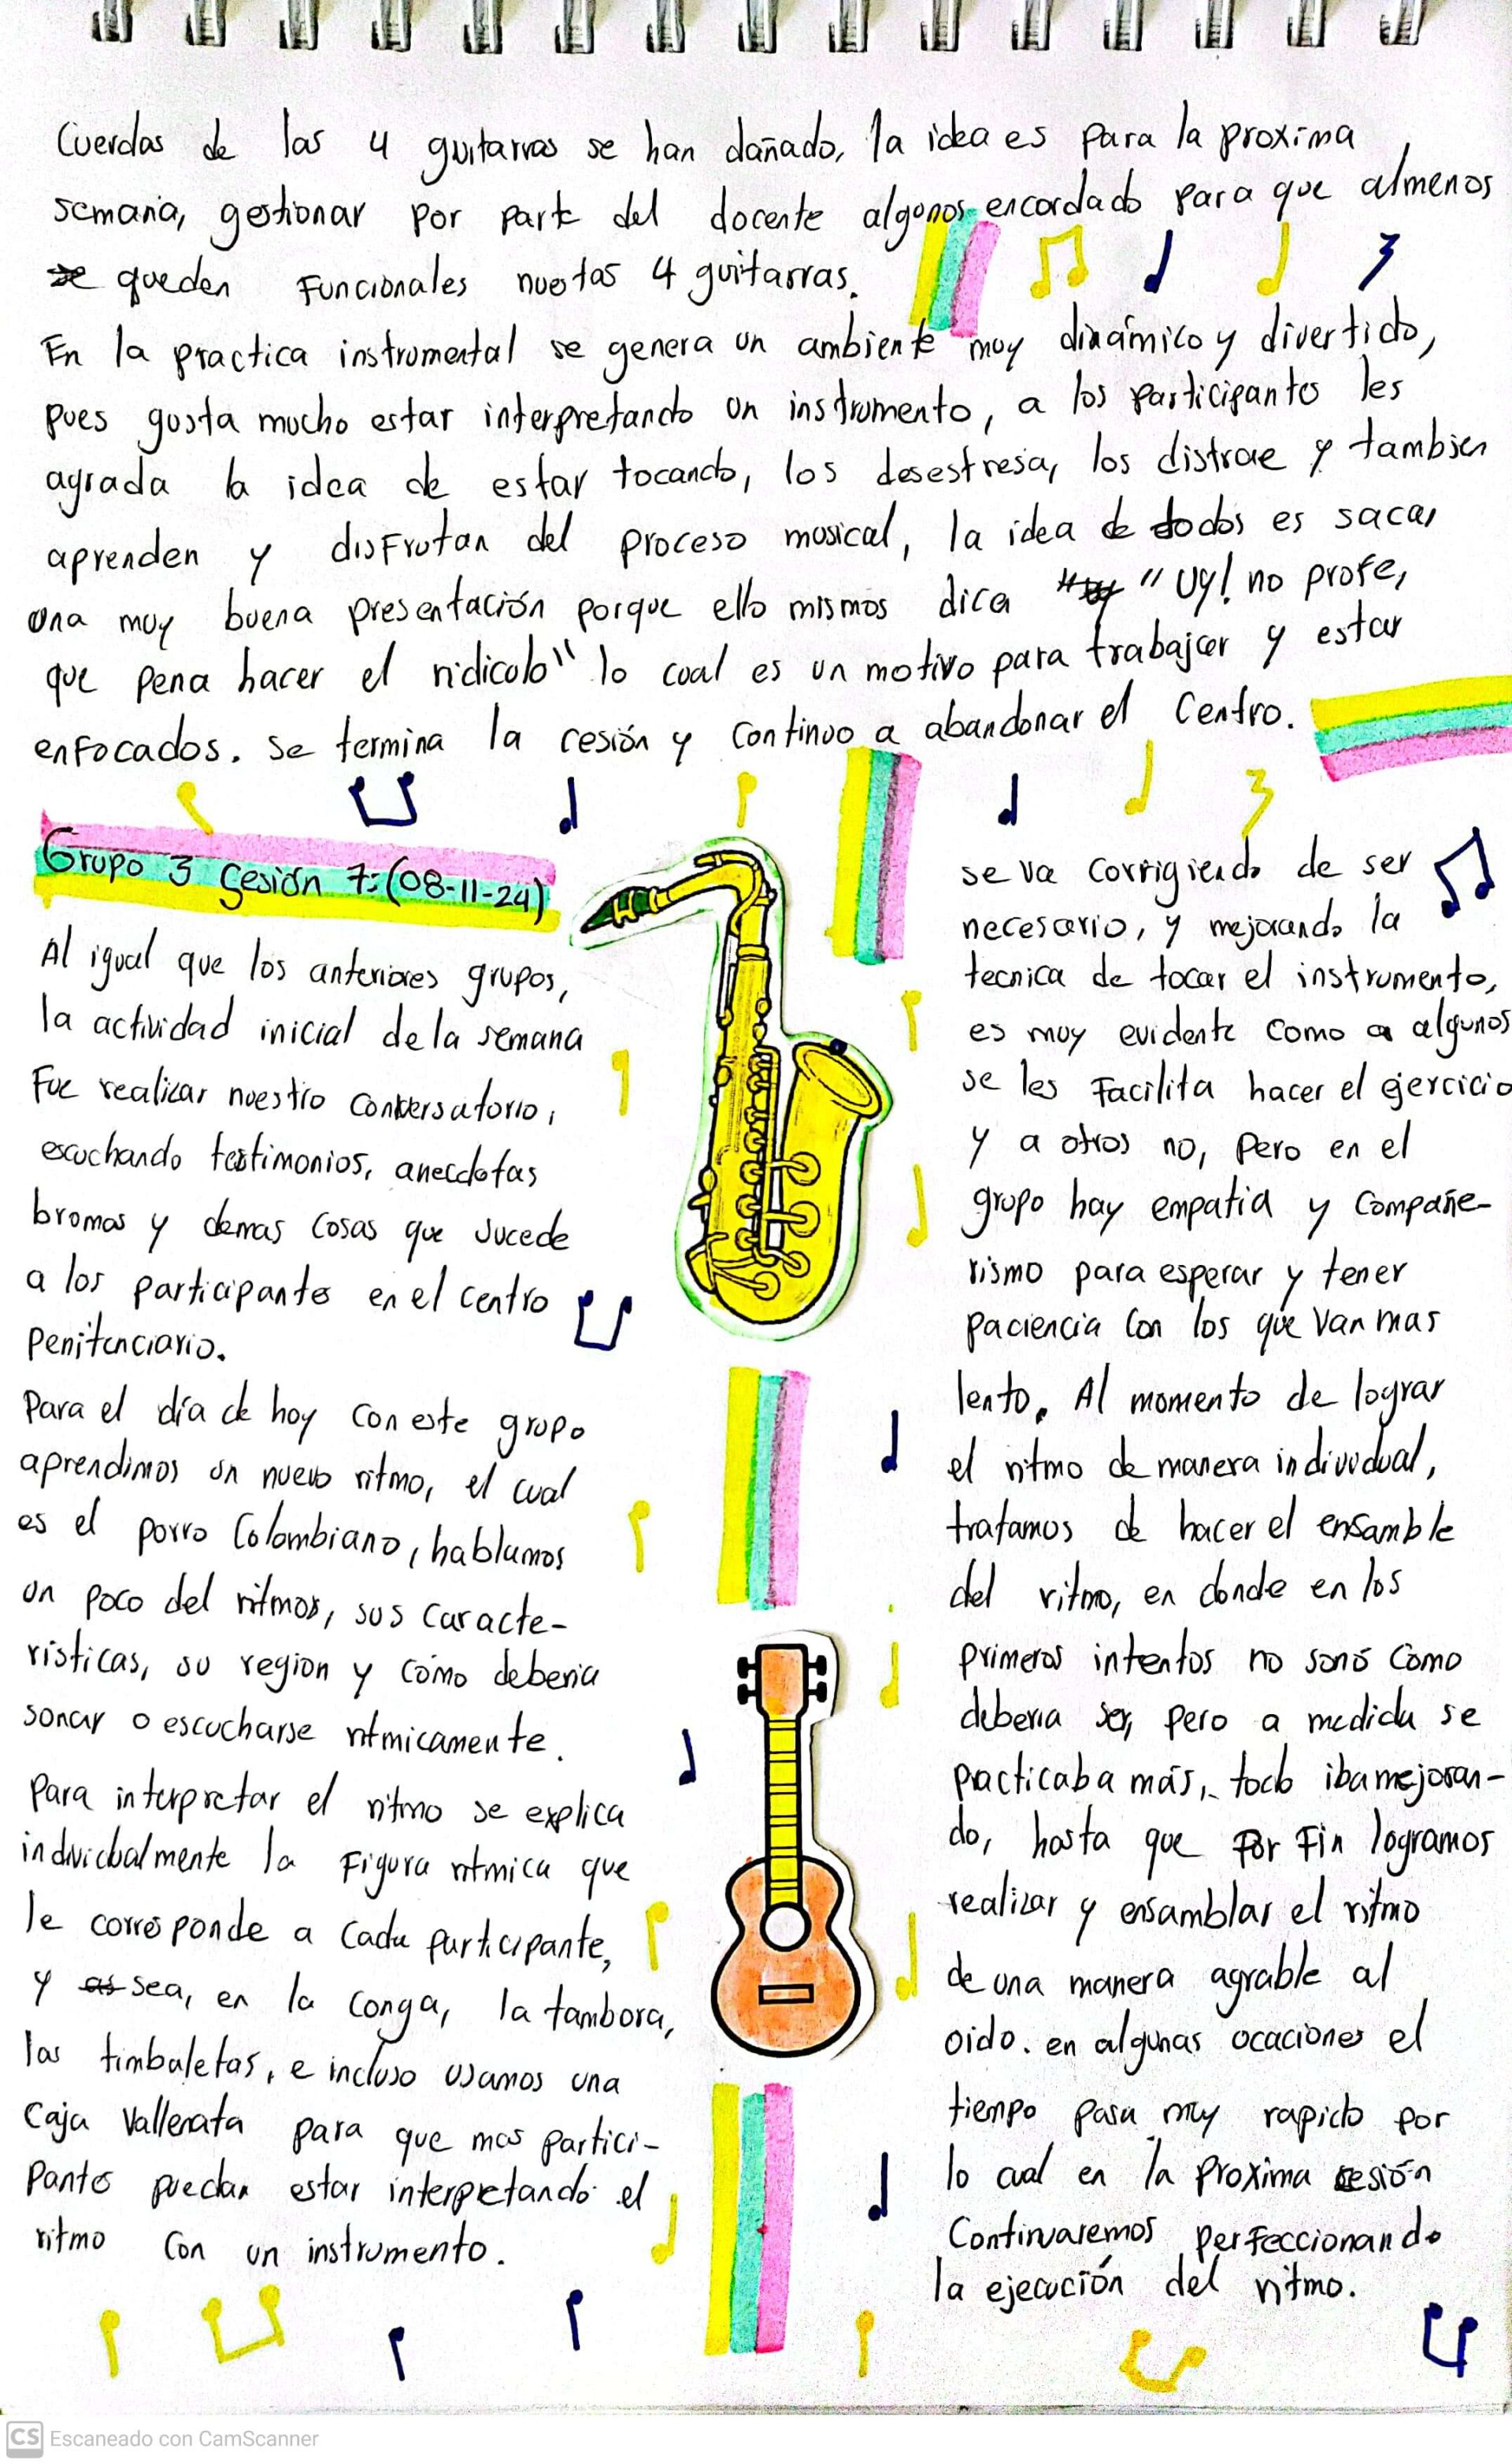 Cuerdas de las 4 guitarras se han dañado, la idea es para la proxima
semana, gestionar por parte del docente algunos encordado para que almenos
se queden Funcionales nuestas 4 guitarras.
En la practica instrumental se genera un ambiente muy dinámico y divertido,
pues gusta mucho estar interpretando un instrumento, a los participantes les
agrada la idea de estar tocando, los desestresa, los distrae y tambien
aprenden y disfrutan del proceso musical, la idea de todos es sacar
una muy buena presentación porque ello mismos dicen " Uy! no profe,
que pena hacer el ridiculo" lo cual es un motivo para trabajar y estar
enfocados. Se termina la cesión y continuo a abandonar el Centro.
Grupo 3 Sesión 7: (08-11-24)
Al igual que los anteriores grupos,
la actividad inicial de la semana
Fue realizar nuestro conversatorio,
escuchando testimonios, anecdotas
bromas y demas cosas que sucede
a los participantes en el centro
Penitenciario.
Para el día de hoy con este grupo
aprendimos un nuevo ritmo, el cual
es el porro Colombiano, hablamos
un poco del ritmos, sus caracte-
risticas, su region y cómo deberia
sonar o escucharse ritmicamente.
Para interpretar el ritmo se explica
individualmente la Figura ritmica que
le corresponde a cada participante,
y sea, en la conga, la tambora,
las timbaletas, e incluso usamos una
Caja Vallenata para que mas partici-
pantes puedan estar interpretando el
ritmo con un instrumento.
se va corrigiendo de ser
necesario, y mejorando la
tecnica de tocar el instrumento,
es muy evidente como a algunos
se les Facilita hacer el ejercicio
y a otros no, pero en el
grupo hay empatia y compañe-
rismo para esperar y tener
paciencia con los que van mas
lento. Al momento de lograr
el ritmo de manera individual,
tratamos de hacer el ensamble
del ritmo, en donde en los
primeros intentos no sonó como
deberia ser, pero a medida se
practicaba más, todo iba mejoran-
do, hasta que por Fin logramos
realizar y ensamblar el ritmo
de una manera agrable al
oido. en algunas ocaciones el
tiempo pasa muy rapido por
lo cual en la proxima sesión
Continuaremos perfeccionando
la ejecución del ritmo.
CS Escaneado con CamScanner